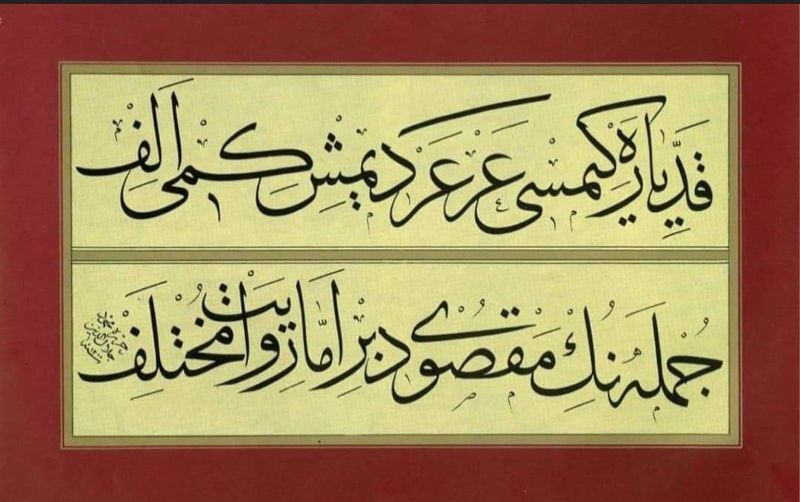 قدّ ياره كيمسى عرعر ديمش كيمى الف
جمله نڭ مقصودى بر اما روايت مختلف